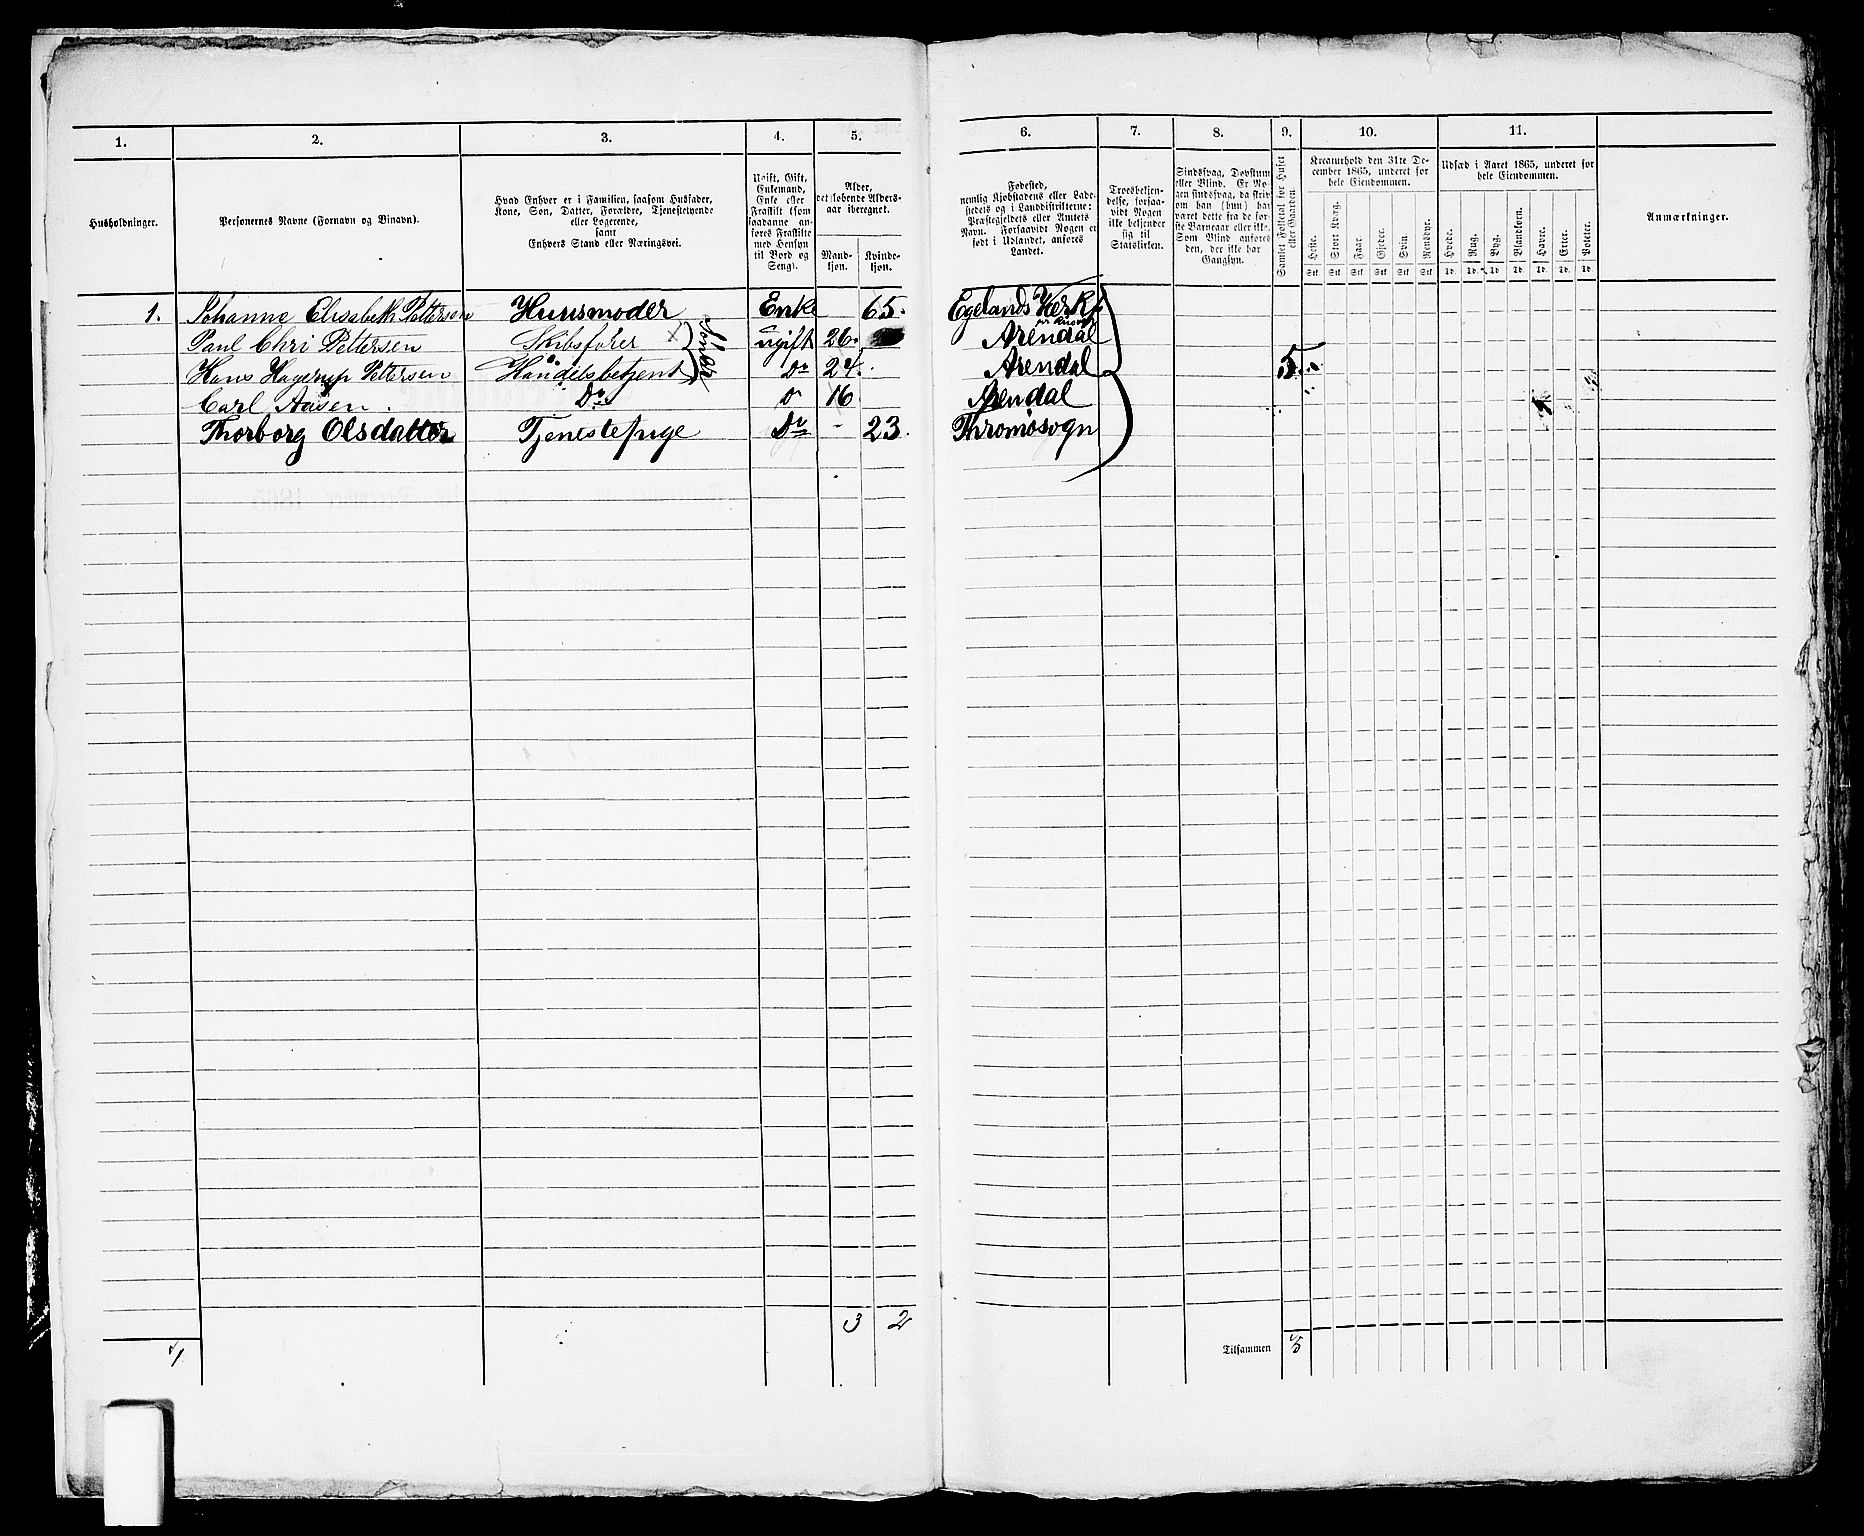 1. 2. 3. 4. 5. 6. 7. 8. 9. 10. 11.
Husholdninger.
Personernes Navne (Fornavn og Binavn).
Hvad Enhver er i Familien, saasom Husfader,
Kone, Søn, Datter, Forældre, Tjenestetyende
eller Logerende,
samt
Enhvers Stand eller Næringsvei.
Ugift, Gift,
Enkemand,
Enke eller
Fraskilt (som
saadanne an-
føres Fraskilte
med Hensyn
til Bord og
Seng).
Alder,
det løbende Alders-
aar iberegnet.
Mand-
kjøn.
Kvinde-
kjøn.
Fødested,
nemlig Kjøbstadens eller Lade-
stedets og i Landdistrikterne:
Præstegjeldets eller Amtets
Navn. Forsaavidt Nogen er
født i Udlandet, anføres
Landet.
Troesbekjen-
delse, forsaa-
vidt Nogen
ikke bekjender
sig til
Statskirken.
Sindssvag, Døvstum
eller Blind. Er No-
gen sindssvag, da skriv
om han (hun) har
været dette fra de før-
ste Barneaar eller ikke.
Som Blind anføres
den, der ikke har
Gangsyn.
Samlet Folketal for Huset
eller Gaarden.
Kreaturhold den 31te De-
cember 1865, underet for
hele Eiendommen.
Heste. Stort Kvæg. Faar. Gjeder. Svin. Rensdyr.
Stk. Stk. Stk. Stk. Stk. Stk.
Udsæd i Aaret 1865, underet for
hele Eiendommen.
Hvede. Rug. Byg. Blandkorn. Havre. Erter. Poteter.
Td. Td. Td. Td. Td. Td. Td.
Anmærkninger.
1. Johanne Elisabeth Pettersen Huusmoder Enke 65. Egelands Værk
Paul Chri Pettersen Skibsfører × ugift 26. Arendal
Sønner
Hans Hagerup Pettersen Handelsbetjent Do 24. Arendal 5.
Carl Aasen. Do Do 16 Arendal
Thorborg Olsdatter Tjenestepige Do - 23. Thromøsogn
3 2
1 Tilsammen 5